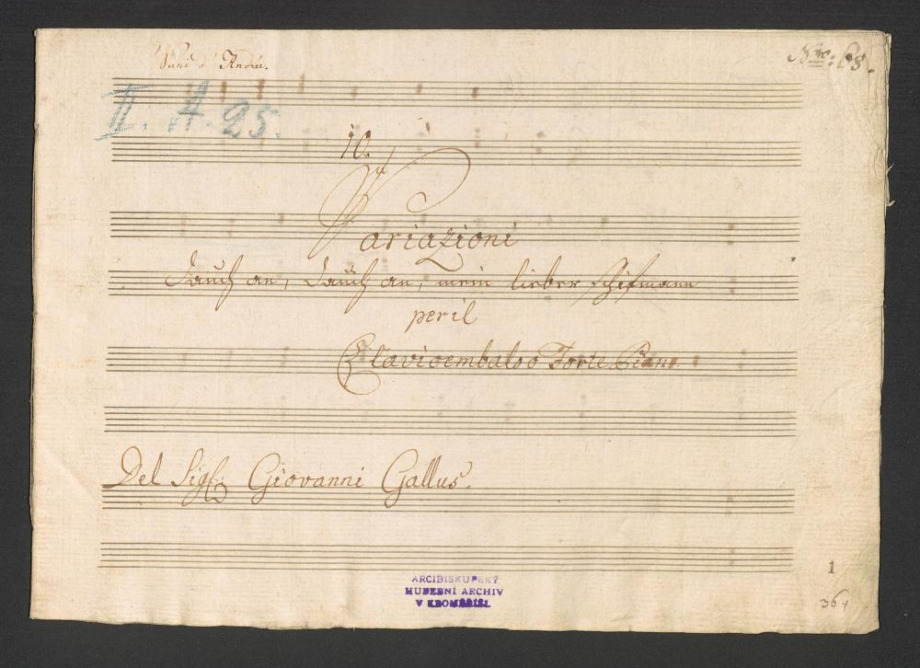 Nro: 68.
II. A. 25.
10.
Variazioni
Tauch an, Tauch an, mein lieber Schifmann
per il
Clavicembalo o Forte Piano
Del Sigl: Giovanni Gallus.
ARCIBISKUPSKÝ
HUDEBNÍ ARCHIV
V KROMĚŘÍŽI.
1
36